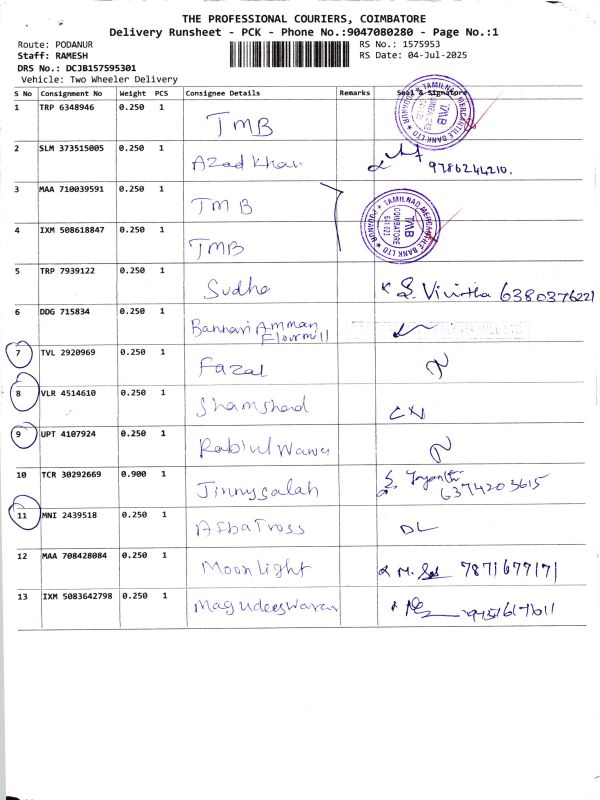 THE PROFESSIONAL COURIERS, COIMBATORE
Delivery Runsheet - PCK - Phone No.:9047080280 - Page No.:1
Route: PODANUR RS No.: 1575953
Staff: RAMESH RS Date: 04-Jul-2025
DRS No.: DCJB157595301
Vehicle: Two Wheeler Delivery
S No Consignment No Weight PCS Consignee Details Remarks Seal & Signature
1 TRP 6348946 0.250 1 TMB TAMILNAD MERCANTILE BANK LTD PODANUR TMB COIMBATORE
2 SLM 373515005 0.250 1 Azad Khan 9786244210.
3 MAA 710039591 0.250 1 TMB TAMILNAD MERCANTILE BANK LTD PODANUR TMB COIMBATORE 641 023
4 IXM 508618847 0.250 1 TMB
5 TRP 7939122 0.250 1 Sudha S. Vinitha 6380376221
6 DDG 715834 0.250 1 Bannari Amman
Flourmill
7 TVL 2920969 0.250 1 Fazal
8 VLR 4514610 0.250 1 Shamshad
9 UPT 4107924 0.250 1 Rabiul Wawa
10 TCR 30292669 0.900 1 Jinnysalah S. Jayanthi
6374203615
11 MNI 2439518 0.250 1 Albatross DL
12 MAA 708428084 0.250 1 Moonlight 7871677171
13 IXM 5083642798 0.250 1 Magudeeswaran